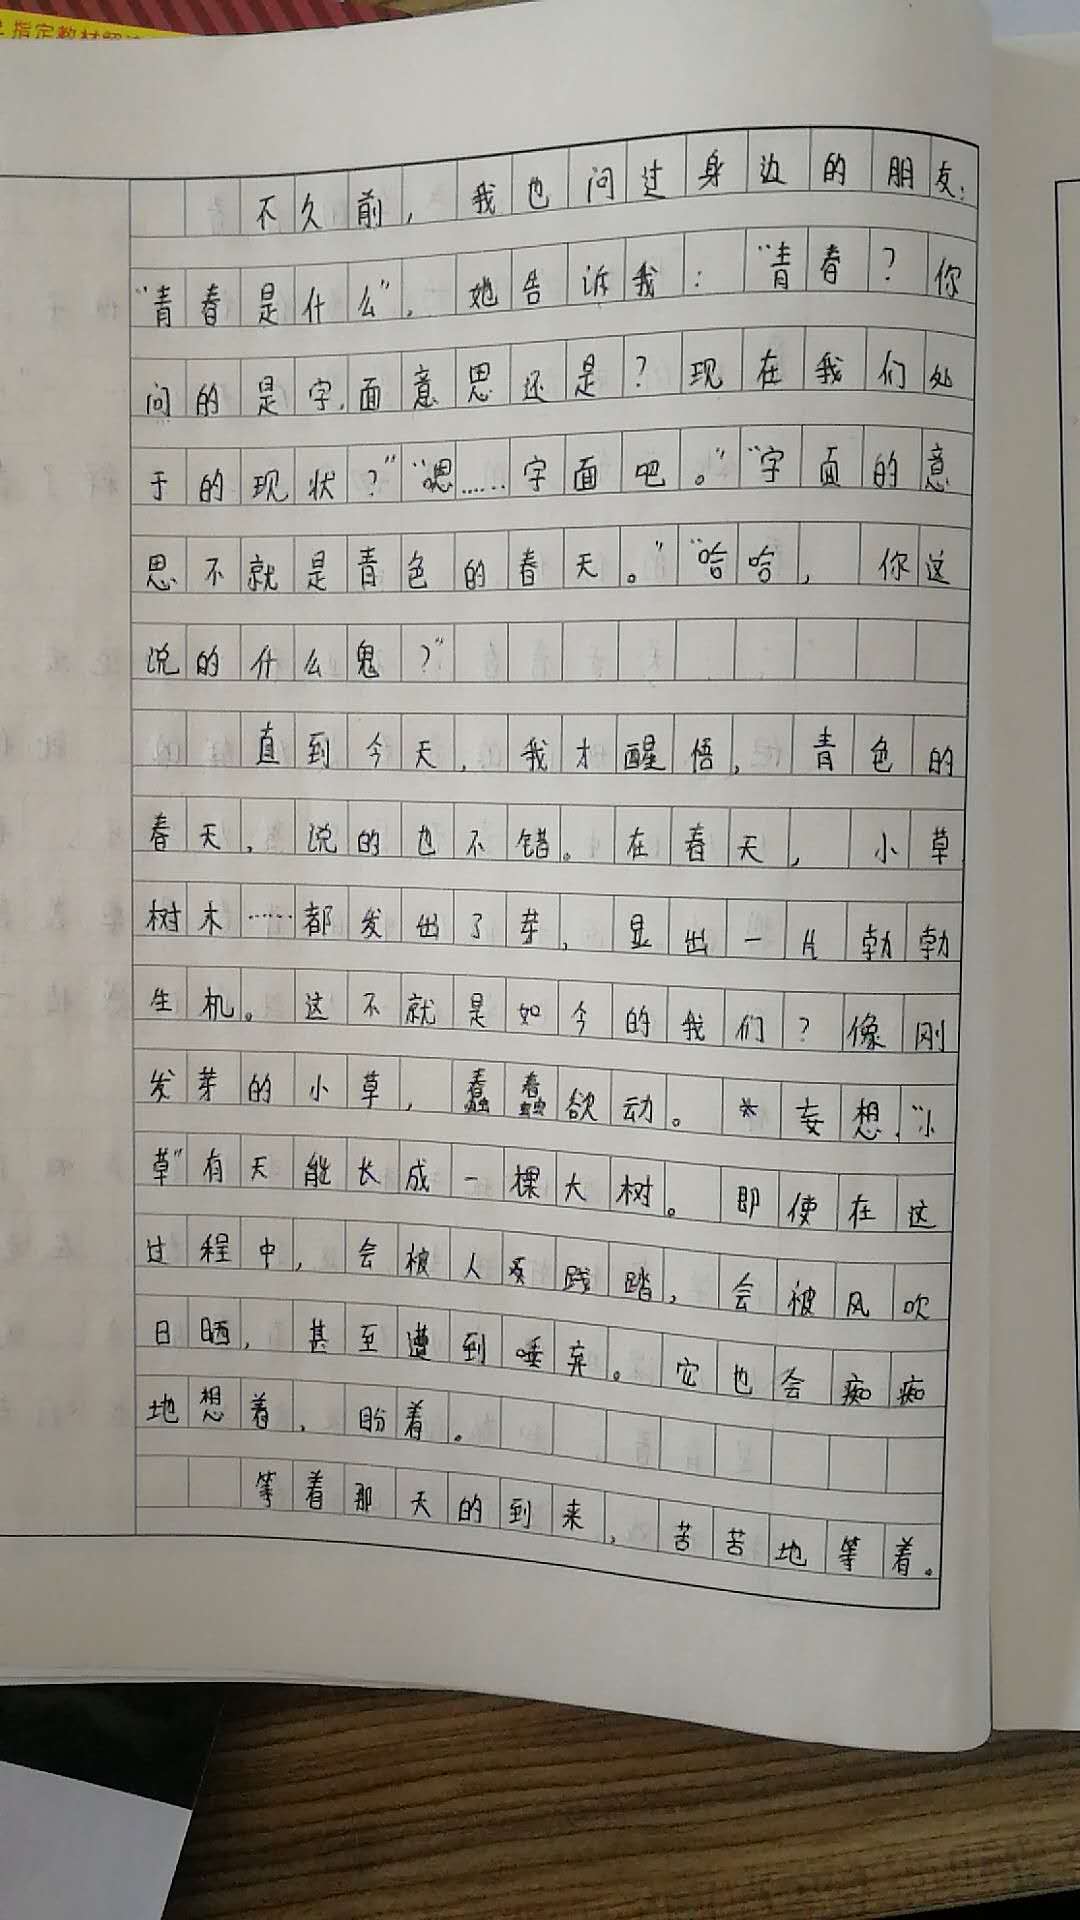 指定教材解
不久前，我也问过身边的朋友：
“青春是什么”。她告诉我：“青春？你
问的是字面意思还是？现在我们处
于的现状？”“嗯……字面吧。”“字面的意
思不就是青色的春天。”“哈哈，你这
说的什么鬼？”
直到今天，我才醒悟，青色的
春天，说的也不错。在春天，小草
树木……都发出了芽，显出一片勃勃
生机。这不就是如今的我们？像刚
发芽的小草，蠢蠢欲动。妄想，“小
草”有天能长成一棵大树。即使在这
过程中，会被人践踏，会被风吹
日晒，甚至遭到唾弃。它也会痴痴
地想着，盼着。
等着那天的到来，苦苦地等着。